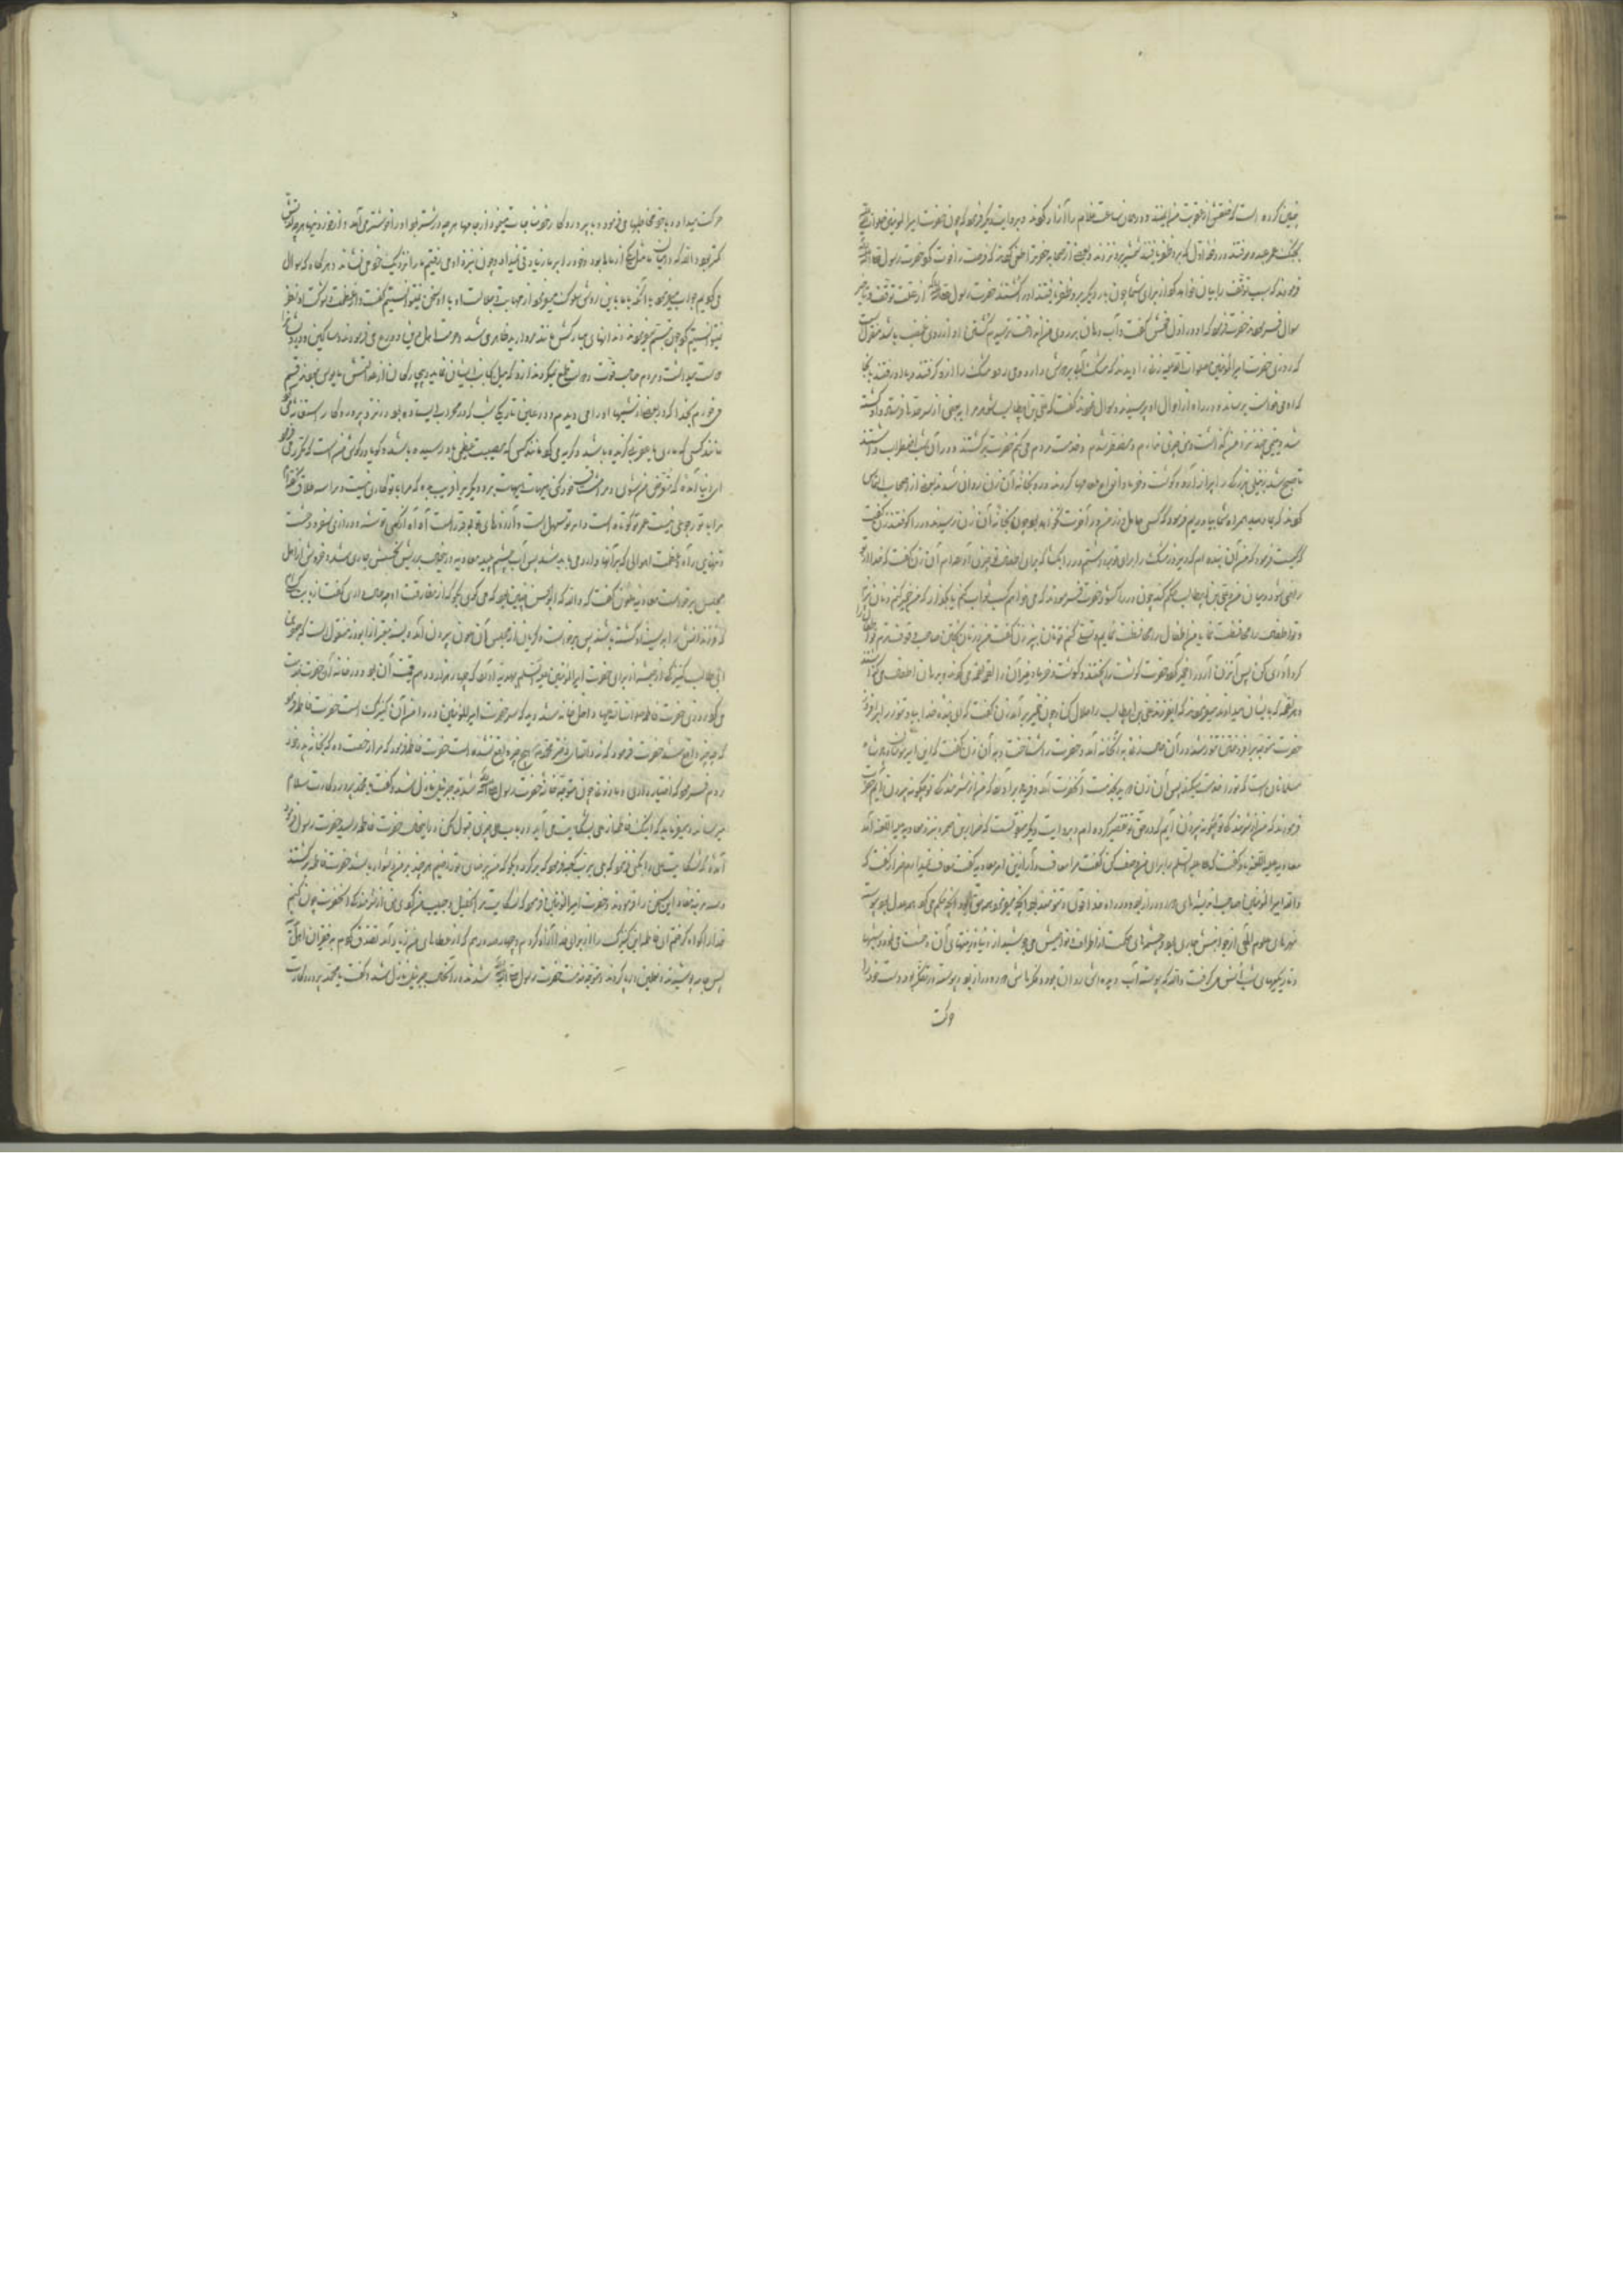 چنین کرده است که متعرض از عقوبت من ایمنند و در همان ساعت غلام را آزاد کردند و بروایت دیگر فرمود که چون حضرت امیرالمؤمنین صلوات الله علیه
بجنگ عمر عبدود رفتند و در دفعهٔ اول که برو ظفر یافتند شمشیر برو نزدند و بعضی از صحابه
فرمودند که سبب توقف را بیان خواهد کرد از برای شما چون بار دیگر برو ظفر یافتند او را کشتند حضرت رسول
سؤال فرمودند حضرت فرمود که او در اول فحش گفت و آب دهان بر روی من انداخت ترسیدم که کشتن او از روی غضب باشد منقولست
که روزی حضرت امیرالمؤمنین صلوات الله علیه زنی را دیدند که مشک آبی بر دوش دارد و می‌رود مشک را ازو گرفتند و با او رفتند بجا
که او می‌خواست برسانند و در راه از احوال او پرسیدند و سؤال نمودند گفت که علی بن ابیطالب شوهر مرا بیعنی از سرحدها فرستاد و او کشته
شد و یتیمی چند نزد من گذاشت و من چیزی ندارم و مضطر شدم و خدمت مردم می‌کنم حضرت برگشتند و در آن شب اضطراب داشتند
تا صبح شد زنبیلی بزرگ را پر از آرد و گوشت و خرما و انواع طعامها کردند و رو بخانه آن زن روان شدند بعضی از اصحاب التماس
کردند که بما دهید همراه شما بیاوریم فرمود که کسی حامل وزر من در آخرت نخواهد بود چون بخانه آن زن رسیدند در را کوفتند زن گفت
کیست فرمود که من آن بنده‌ام که دیروز مشک را برای تو برداشتم در را بگشا که برای اطفال تو چیزی آورده‌ام آن زن گفت که خدا از تو
راضی شود و میان من و علی بن ابیطالب حکم کند چون در را گشود حضرت فرمودند که می‌خواهم کسب ثواب کنم یا بگذار که من خمیر کنم و نان بپزم
و تو اطفال را محافظت نما یا من اطفال را محافظت نمایم و تو خمیر کنی و نان بپزی زن گفت من در نان پختن صاحب وقوف‌ترم تو اطفال را
گرد آوری کن پس آن زن آرد را خمیر کرد و حضرت گوشت را پختند و گوشت و خرما و غیر آن را لقمه لقمه می‌کردند و بدهان اطفال می‌گذاشتند
و هر لقمه که بایشان میدادند میفرمودند که ای فرزند علی بن ابیطالب را حلال کن و چون خمیر برآمد زن گفت که ای بنده خدا بیا و تنور را برافروز
حضرت متوجه برافروختن تنور شدند در آن حالت زنی به آن خانه آمد و حضرت را شناخت و به آن زن گفت که این امیر مؤمنان و پادشاه
مسلمانان است که تو را خدمت میکند پس آن زن دوید بخدمت آن حضرت آمد و فریاد برآورد که من از شرمندگی تو چگونه بیرون آیم حضرت
فرمودند که من از شرمندگی تو چگونه بیرون آیم که در حق تو تقصیر کرده‌ام و بروایت دیگر منقولست که ضرار بن ضمره نزد معاویه علیه اللعنه آمد
معاویه علیه اللعنه گفت که علی علیه السلم را برای من وصف کن گفت مرا معاف دار از این امر معاویه گفت معاف نمیدارم ضرار گفت که
والله امیرالمؤمنین صاحب اندیشه‌های دور و دراز بود و در راه خدا قوی و تنومند بود آنچه میفرمود همه حق بود و آنچه حکم می‌کرد همه عدل بود پیوسته
نهرهای علوم الهی از جوانبش جاری بود و چشمه‌های حکمت از اطراف و نواحیش می‌جوشید از دنیا و زینتهای آن وحشت می‌نمود و بشبها
و تاریکیهای شب انس می‌گرفت والله که پیوسته آب دیده‌اش روان بود و فکرهایش دور و دراز بود و پیوسته در تفکر بود و دست خود را
حرکت
حرکت میداد و با خود مخاطبه‌ها می‌فرمود و با پروردگار خود مناجات مینمود از جامها هر چه درشت‌تر بود او را خوشتر می‌آمد و از خوردنیها هر چه
کمتر بود والله که در میان ما مثل یکی از ماها بود و خود را بر ما زیادتی نمیداد و چون نزد او می‌رفتیم ما را نزدیک خود می‌نشاند و هر گاه که سؤال
می‌کردیم جواب میفرمود با آنکه با ما باین روش سلوک میفرمود از مهابت و جلالت او با او سخن نمیتوانستیم گفت و از عظمت و شوکت او نظر
نمیتوانستیم کرد چون تبسم میفرمود دندانهای مبارکش مانند مروارید ظاهر می‌شد و حرمت اهل دین و ورع می‌فرمودند و مساکین و درویشان را
دوست میداشت و مردم صاحب قوت در باطل طمع نمیکردند ازو که میل بجانب ایشان نماید و بیچارگان از عدالتش مأیوس نبودند قسم
می‌خورم بخدا که در بعضی از شبها او را می‌دیدم در عین تاریکی شب که در محراب ایستاده بود و نزد پروردگار
مانند کسی که ماری یا عقربی گزیده باشد و گریه می‌کرد مانند کسی که مصیبت عظیمی باو رسیده باشد و گویا در گوش منست که مکرر می‌فرمود
ای دنیا آمده که متعرض من شوی و مرا مشتاق خود کنی هیهات هیهات برو دیگری را فریب ده که مرا با تو کاری نیست و ترا سه طلاق گفته‌ام
مرا به تو رجوعی نیست عمر تو کوتاه است و امر تو سهل است و آرزوهای تو حقیر است آه آه از کمی توشه و درازی سفر و وحشت
تنهایی راه و عظمت احوالی که بر آنها وارد می‌باید شد پس آب چشم پلید معاویه بر ریش نحسش جاری شد و خروش از اهل
مجلس برخاست معاویه ملعون گفت که والله که ابوالحسن چنین بود که می‌گویی بگو که از مفارقت او چه حال داری گفت از بابت کسی
که فرزندانش را در پیش او کشته باشند پس برخاست و گریان از مجلس آن ملعون بیرون آمد و بسند معتبر از ابوذر منقول است که جعفر بن
ابی طالب کنیزکی از حبشه از برای حضرت امیرالمؤمنین علیه السلم بهدیه آورد که چهار هزار درهم قیمت آن بود و در خانه آن حضرت خدمت
می‌کرد روزی حضرت فاطمه صلوات الله علیها داخل خانه شد دید که سر حضرت امیرالمؤمنین در دامن آن کنیزک است حضرت فاطمه فرمود
که چیزی واقع شد حضرت فرمود که نه والله ای دختر محمد که هیچ چیز واقع نشده است حضرت فاطمه فرمود که مرا رخصت ده که بخانه پدر خود
روم فرمود که اختیار داری چادر زده چون متوجه خانه حضرت رسول شدند جبرئیل نازل شد و گفت یا محمد پروردگارت سلام
میرساند و میفرماید که اینک فاطمه از علی بشکایت می‌آید در باب علی چیزی قبول مکن در اینحال حضرت فاطمه رسید حضرت رسول فرمود
آمده که شکایت علی را بکنی فرمود که بلی برب کعبه فرمود که برگرد و بگو که من برضای تو راضیم هر چند بر من دشوار باشد حضرت فاطمه برگشتند
و سه مرتبه این سخن را فرمودند و حضرت امیرالمؤمنین فرمود که شکایت مرا بخلیل و حبیب من کردی من از شرمندگی آنحضرت چون کنم
خدا را گواه گرفتم ای فاطمه این کنیزک را از برای خدا آزاد کردم و چهارصد درهم که از عطای من زیاد آمد تصدق کردم بر فقیران اهل مدینه
پس جامه پوشیدند و نعلین در پا کردند و متوجه خدمت حضرت رسول شدند در آنحال جبرئیل نازل شد و گفت یا محمد پروردگارت